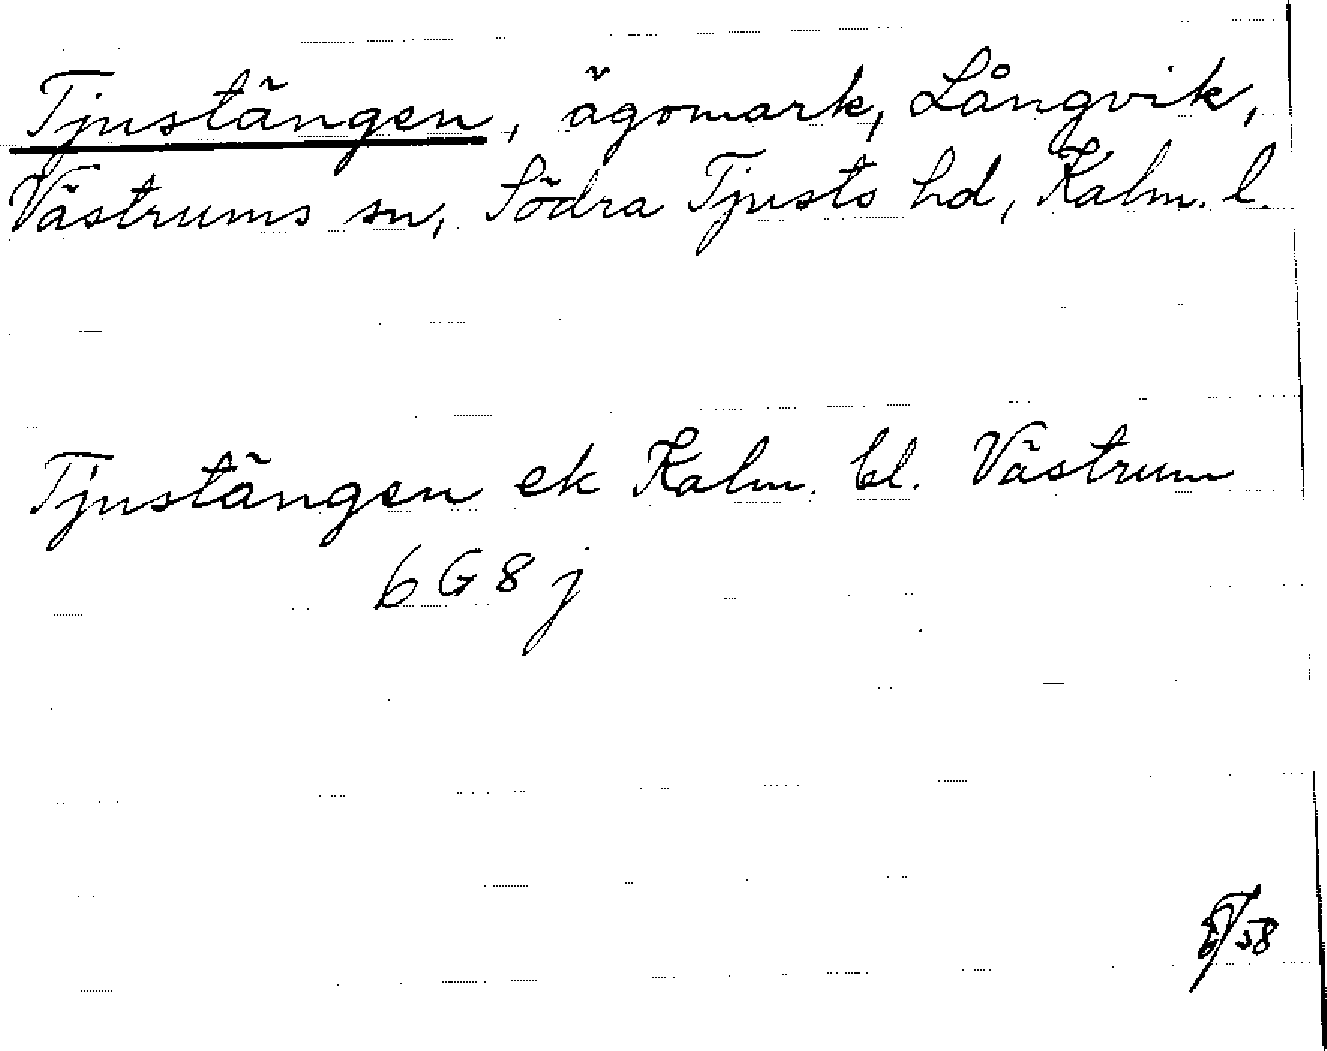 Tjustängen, ägomark, Långvik,
Västrums sn, Södra Tjusts hd, Kalm. l.
Tjustängen ek Kalm. bl. Västrum
6 G 8 j
/58